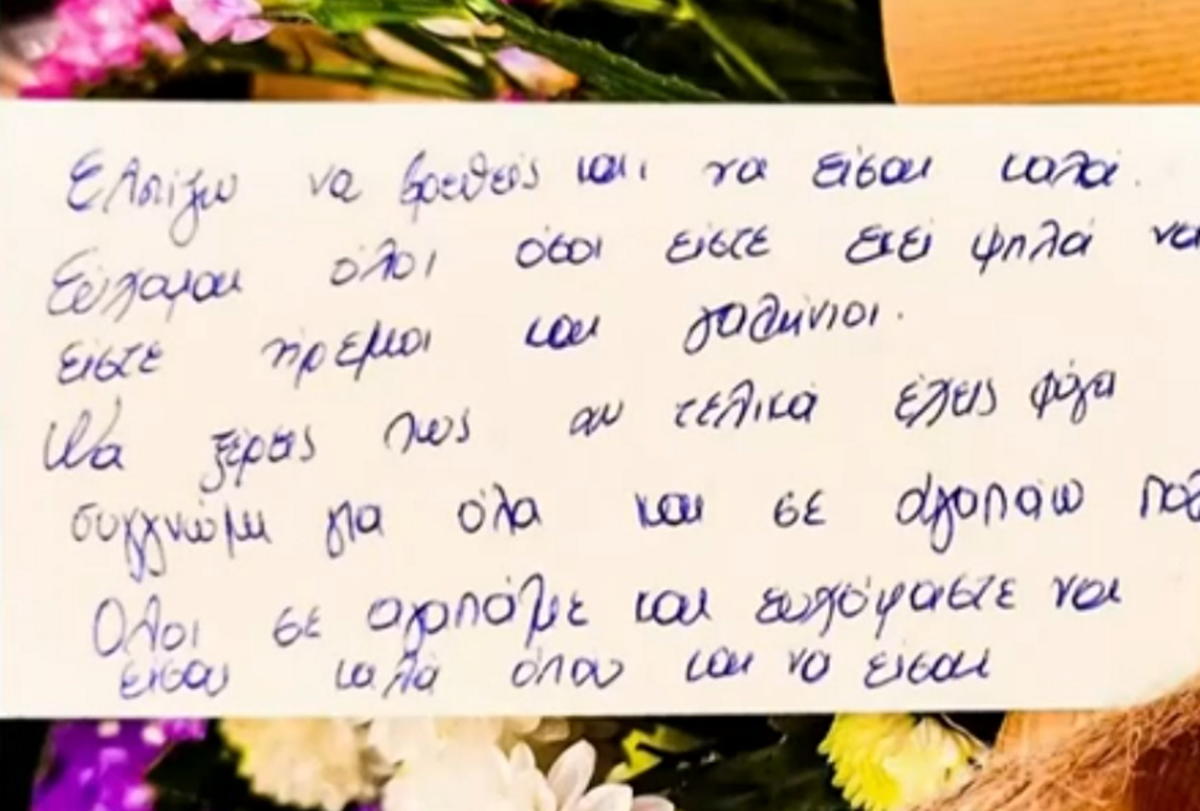 Ελπίζω να βρεθείς και να είσαι καλά.
Εύχομαι όλοι όσοι είστε εκεί ψηλά να
είστε ήρεμοι και γαλήνιοι.
Να ξέρεις πως αν τελικά έχεις φύγει
συγγνώμη για όλα και σε αγαπάω
Όλοι σε αγαπάμε και ευχόμαστε να
είσαι καλά όπου και να είσαι